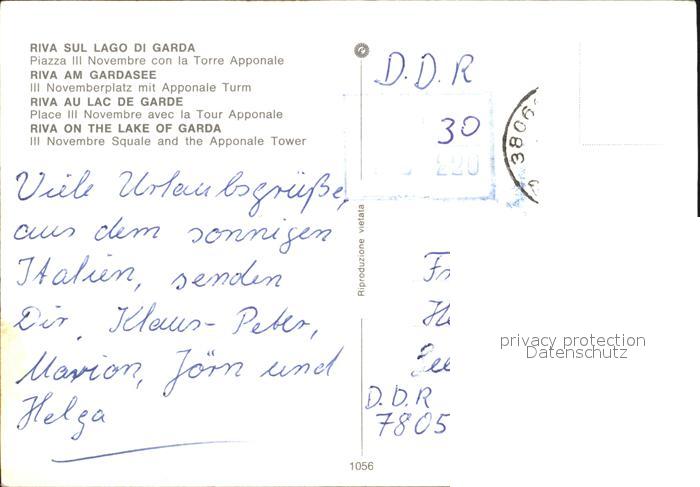 RIVA SUL LAGO DI GARDA
Piazza III Novembre con la Torre Apponale
RIVA AM GARDASEE
III Novemberplatz mit Apponale Turm
RIVA AU LAC DE GARDE
Place III Novembre avec la Tour Apponale
RIVA ON THE LAKE OF GARDA
III Novembre Squale and the Apponale Tower
Viele Urlaubsgrüße,
aus dem sonnigen
Italien, senden
Dir, Klaus-Peter,
Marion, Jörn und
Helga
Riproduzione vietata
1056
D.D.R
30
220
38066
privacy protection
Datenschutz
D.D.R
7805